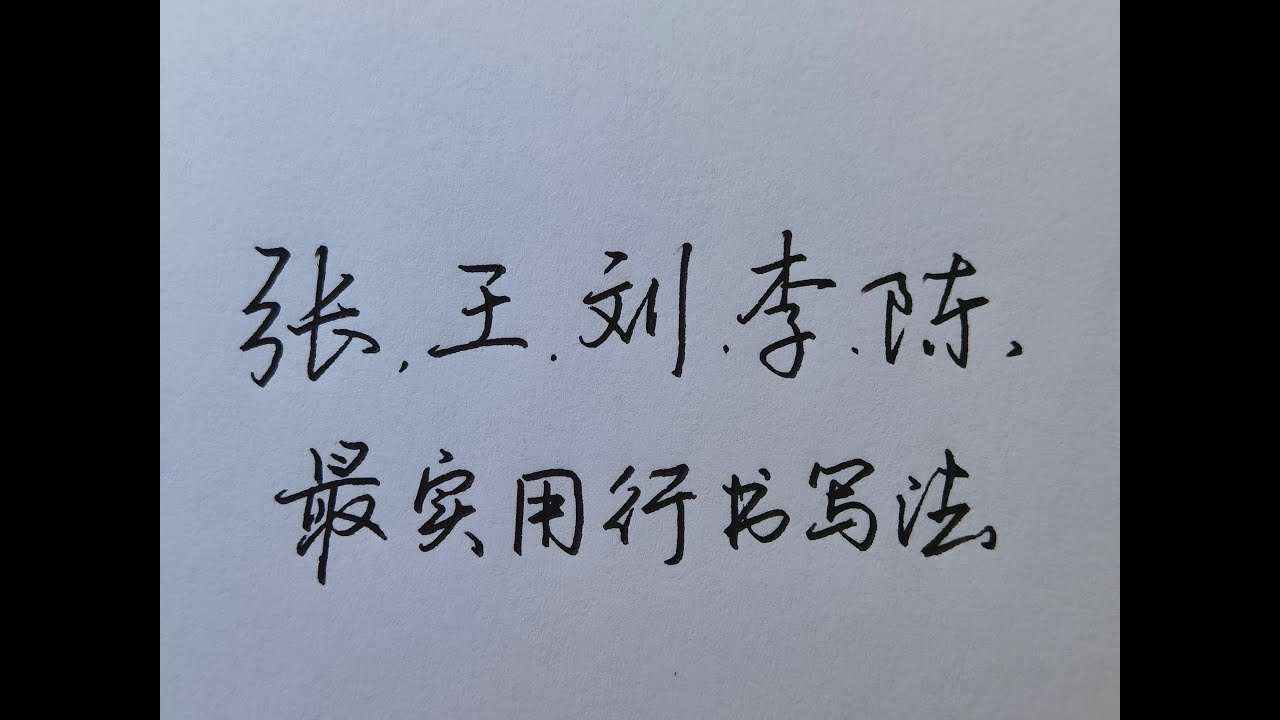 张.王.刘.李.陈、
最实用行书写法